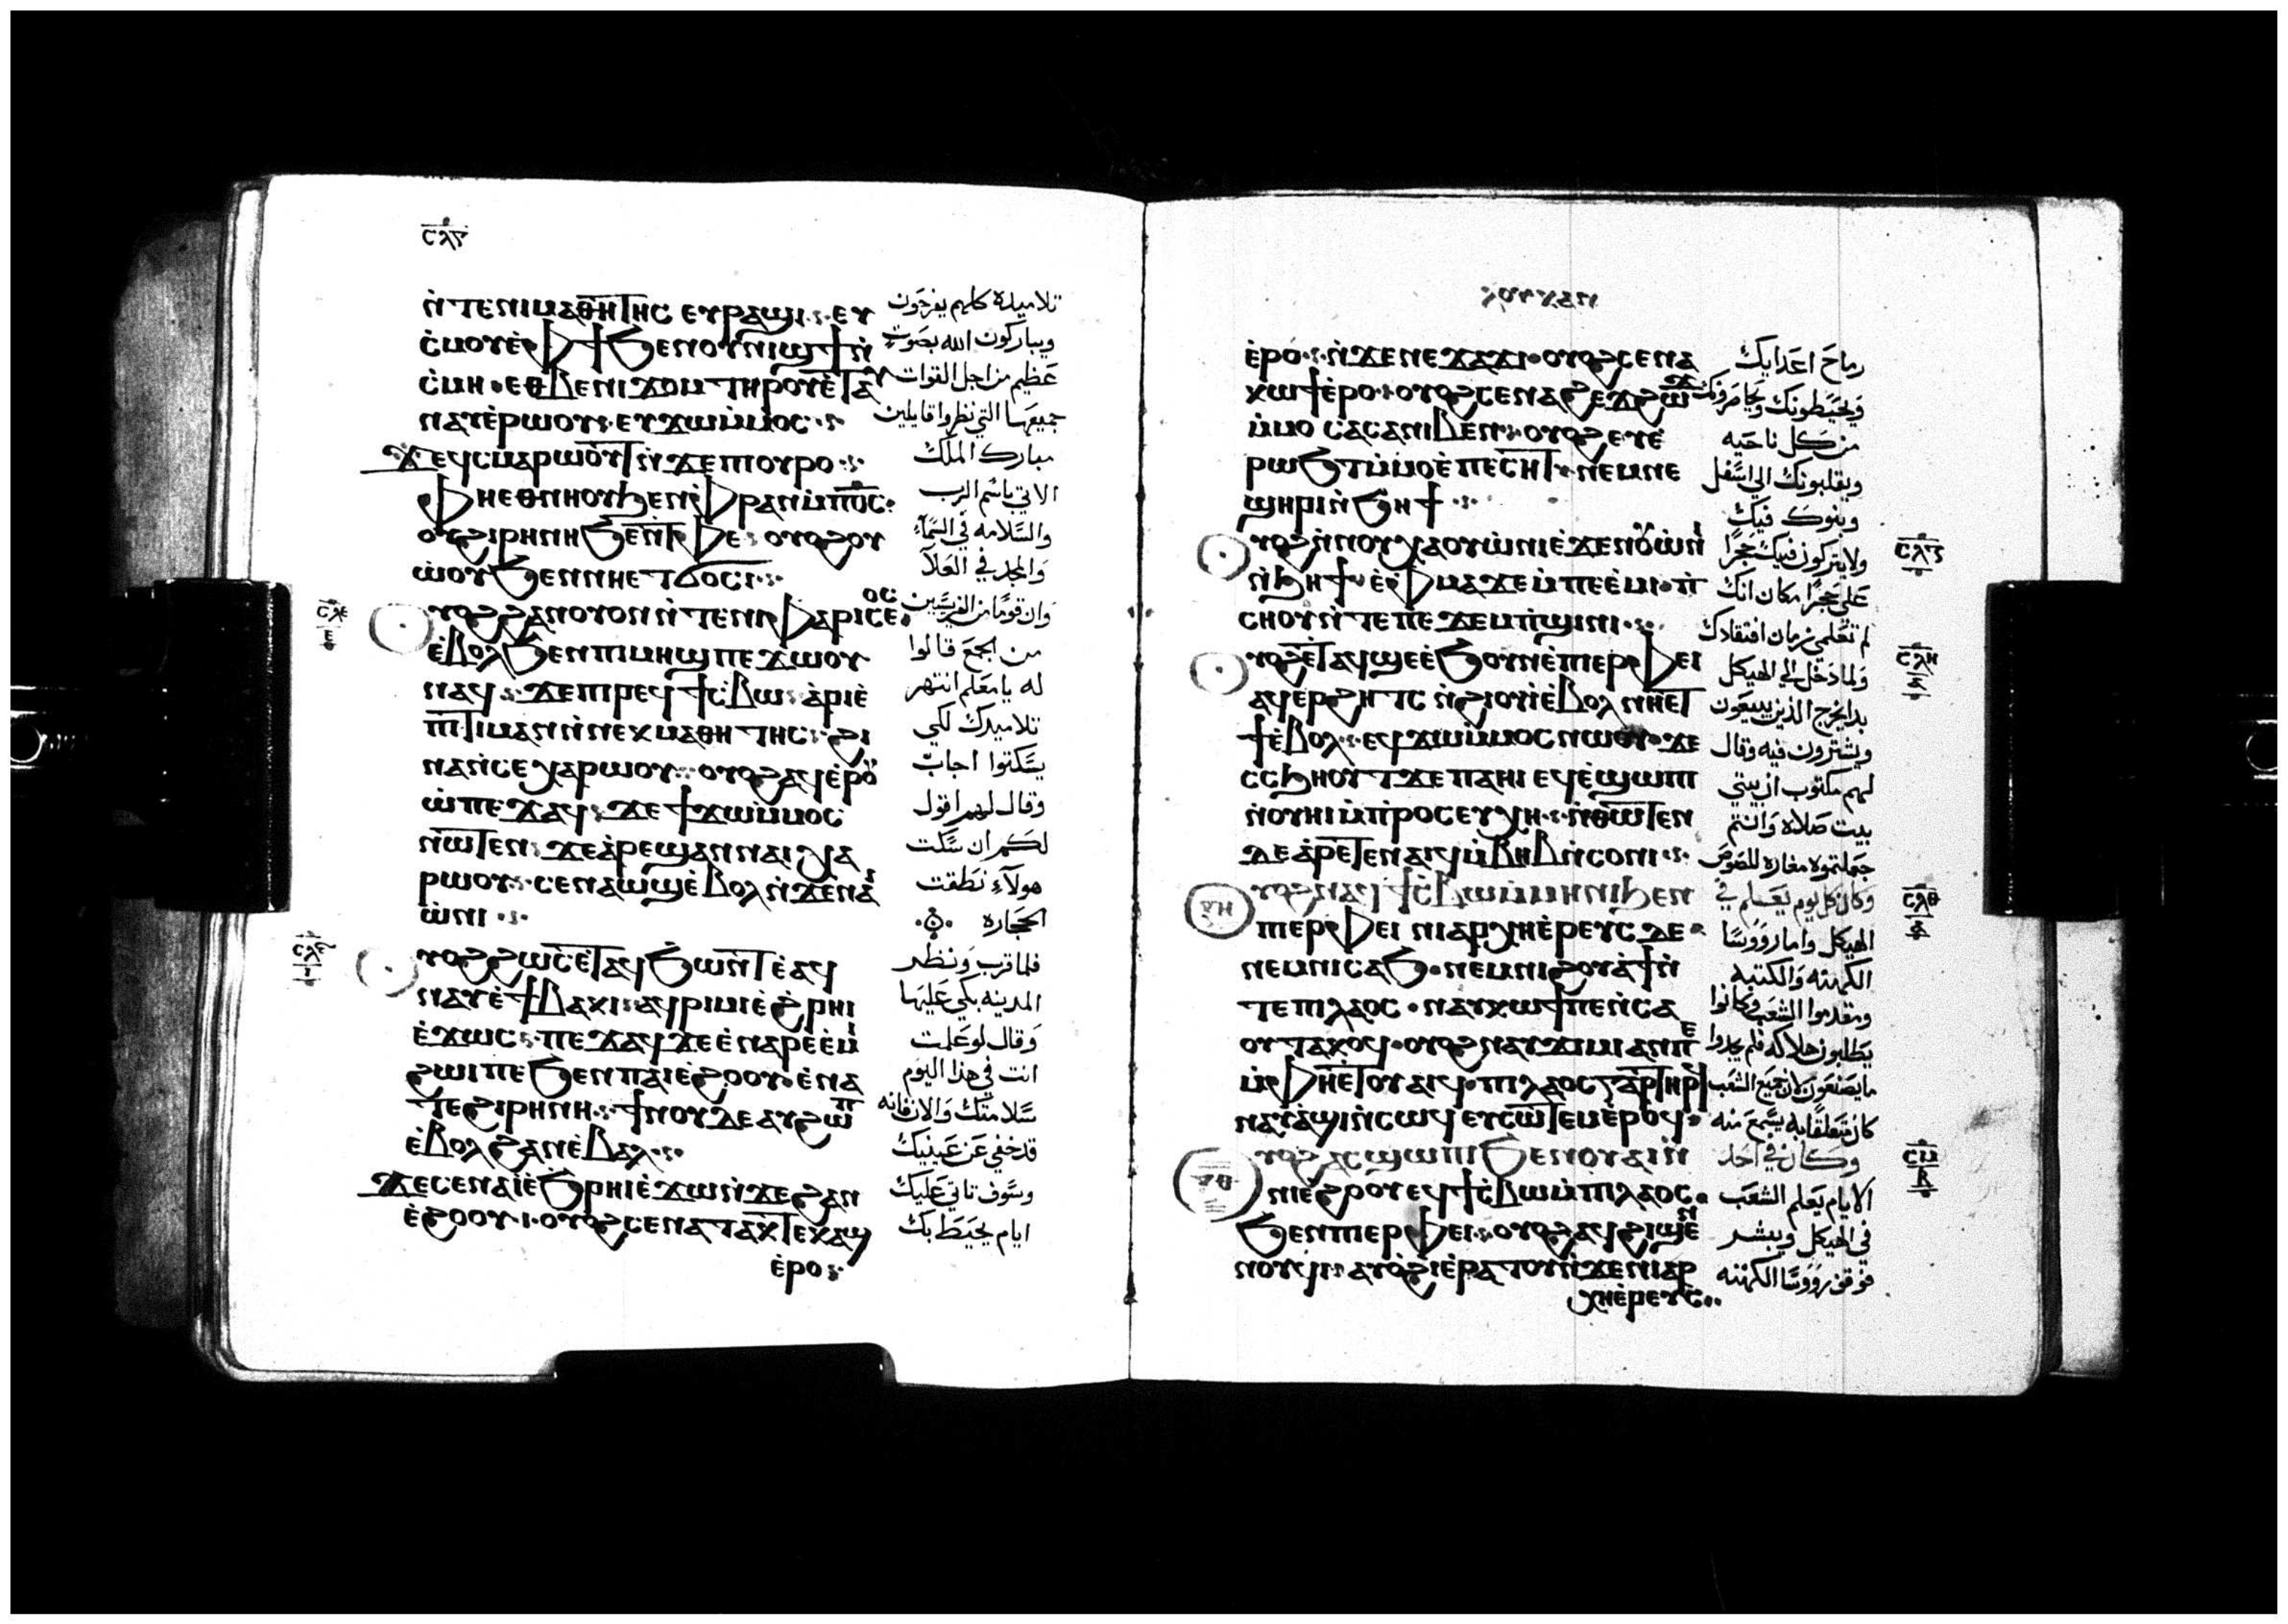 ⲥⲗⲋ
ⲛ̀ⲧⲉⲛⲓⲙⲁⲑⲏⲧⲏⲥ ⲉⲩⲣⲁϣⲓ ⲉⲩ
ⲥ̀ⲙⲟⲩⲉ̀ⲫϯϧⲉⲛⲟⲩⲛⲓϣϯⲛ̀
ⲥ̀ⲙⲏ ⲉⲑⲃⲉⲛⲓϫⲟⲙ ⲧⲏⲣⲟⲩⲉ̀ⲧⲁⲩ
ⲛⲁⲩⲉ̀ⲣⲱⲟⲩ ⲉⲩϫⲱⲙ̀ⲙⲟⲥ
ϫⲉϥⲥⲙⲁⲣⲱⲟⲩⲧⲛ̀ϫⲉⲡⲟⲩⲣⲟ
ⲫⲏⲉⲑⲛⲏⲟⲩϧⲉⲛⲫⲣⲁⲛⲙ̀ⲡⲟ̅ⲥ̅
ⲟⲩϩⲓⲣⲏⲛⲏϧⲉⲛⲧⲫⲉ ⲟⲩⲟϩⲟⲩ
ⲱ̀ⲟⲩϧⲉⲛⲛⲏⲉⲧϭⲟⲥⲓ
ⲩⲟϩϩⲁⲛⲟⲩⲟⲛ ⲛ̀ⲧⲉⲛⲓⲫⲁⲣⲓⲥⲉⲟⲥ
ⲉ̀ⲃⲟⲗϧⲉⲛⲡⲓⲙⲏϣ ⲡⲉϫⲱⲟⲩ
ⲛⲁϥ ϫⲉⲡⲓⲣⲉϥϯⲥ̀ⲃⲱ ⲁ̀ⲣⲓⲉ̀
ⲡⲓⲧⲓⲙⲁⲛⲛ̀ⲛⲉⲕⲙⲁⲑⲏⲧⲏⲥ ϩⲓ
ⲛⲁⲛ̀ⲥⲉⲭⲁⲣⲱⲟⲩ ⲟⲩⲟϩⲁϥⲉ̀ⲣⲟⲩ
ⲱ̀ⲡⲉϫⲁϥ ϫⲉϯϫⲱⲙ̀ⲙⲟⲥ
ⲛⲱⲧⲉⲛ ϫⲉⲁ̀ⲣⲉϣⲁⲛⲛⲁⲓⲭⲁ
ⲣⲱⲟⲩ ⲥⲉⲛⲁⲱϣⲉ̀ⲃⲟⲗⲛ̀ϫⲉⲛⲁⲓ
ⲱ̀ⲛⲓ
ⲩⲟϩϩⲱⲥⲉ̀ⲧⲁϥϧⲱⲛⲧⲉ̀ⲁϥ
ⲛⲁⲩⲉ̀ϯⲃⲁⲕⲓ ⲁϥⲣⲓⲙⲓⲉ̀ϩ̀ⲣⲏⲓ
ⲉ̀ϫⲱⲥ ⲡⲉϫⲁϥ ϫⲉⲉ̀ⲛⲁⲣⲉⲉ̀ⲙⲓ
ϩⲱⲓⲡⲉϧⲉⲛⲡⲁⲓⲉ̀ϩⲟⲟⲩ ⲉ̀ⲛⲁ
ⲧⲉϩⲓⲣⲏⲛⲏ ϯⲛⲟⲩⲇⲉⲁⲩϩⲱⲡ
ⲉ̀ⲃⲟⲗϩⲁⲛⲉ̀ⲃⲁⲗ
ϫⲉⲥⲉⲛⲁⲓⲉ̀ϧⲣⲏⲓⲉ̀ϫⲱⲛ̀ϫⲉϩⲁⲛ
ⲉ̀ϩⲟⲟⲩ ⲟⲩⲟϩⲥⲉⲛⲁⲧⲁⲕⲧⲉⲕⲁϣ
ⲉ̀ⲣⲟ
تلاميذه كلهم يفرحون
ويباركون الله بصوت
عظيم من اجل القوات
جميعها التي نظروا قايلين
مبارك الملك
الاتي باسم الرب
والسلامه في السماء
والمجد في العلا
وان قوما من الفريسيين
من الجمع قالوا
له يا معلم انتهر
تلاميدك لكي
يسكتوا اجاب
وقال لهم اقول
لكم ان سكت
هولاء نطقت
الحجاره
فلما قرب ونظر
المدينه بكي عليها
وقال لو علمت
انت في هذا اليوم
سلامتك والان فانه
قد خفي عن عينيك
وسوف تاتي عليك
ايام يحيط بك
ⲥⲗⲉ
ⲉ
ⲥⲗⲋ
ⲓ
ⲉ̀ⲣⲟ ⲛ̀ϫⲉⲛⲉϫⲁϫⲓ ⲟⲩⲟϩⲥⲉⲛⲁ
ⲕⲱϯⲉ̀ⲣⲟ ⲟⲩⲟϩⲥⲉⲛⲁϩⲉϫϩⲱϫ
ⲙ̀ⲙⲟ ⲥⲁⲥⲁⲛⲓⲃⲉⲛ ⲟⲩⲟϩⲉⲩⲉ̀
ⲣⲱϧⲧⲙ̀ⲙⲟⲉ̀ⲡⲉⲥⲏⲧ ⲛⲉⲙⲛⲉ
ϣⲏⲣⲓⲛ̀ϧⲏϯ
ⲩⲟϩⲛ̀ⲛⲟⲩⲭⲁⲟⲩⲱ̀ⲛⲓⲉ̀ϫⲉⲛⲟⲩⲱ̀ⲛⲓ
ⲛ̀ϧⲏϯ ⲉ̀ⲫⲙⲁϫⲉⲙ̀ⲡⲉⲉ̀ⲙⲓ ⲡ̀
ⲥⲏⲟⲩⲛ̀ⲧⲉⲡⲉϫⲉⲙⲡ̀ϣⲓⲛⲓ
ⲩⲟϩⲉ̀ⲧⲁϥϣⲉⲉ̀ϧⲟⲩⲛⲉ̀ⲡⲓⲉⲣⲫⲉⲓ
ⲁϥⲉⲣϩⲏⲧⲥ ⲛ̀ϩⲓⲟⲩⲓⲉ̀ⲃⲟⲗ ⲛⲛⲏⲉⲧ
ϯⲉ̀ⲃⲟⲗ ⲉϥϫⲱⲙ̀ⲙⲟⲥⲛⲱⲟⲩ ϫⲉ
ⲥⲥϧⲏⲟⲩⲧϫⲉⲡⲁⲏⲓ ⲉϥⲉ̀ϣⲱⲡⲓ
ⲛ̀ⲟⲩⲏⲓⲙ̀ⲡⲣⲟⲥⲉⲩⲭⲏ ⲛ̀ⲑⲱⲧⲉⲛ
ⲇⲉⲁ̀ⲣⲉⲧⲉⲛⲁⲓϥⲙ̀ⲃⲏⲃⲛ̀ⲥⲟⲛⲓ
ⲩⲟϩⲛⲁϥϯⲥ̀ⲃⲱⲙ̀ⲙⲏⲛⲓⲃⲉⲛ
ⲡⲓⲉⲣⲫⲉⲓ ⲛⲓⲁⲣⲭⲏⲉ̀ⲣⲉⲩⲥ ⲇⲉ
ⲛⲉⲙⲛⲓⲥⲁϧ ⲛⲉⲙⲛⲓϩⲟⲩⲁ̀ϯⲛ̀
ⲧⲉⲡⲓⲗⲁⲟⲥ ⲛⲁⲩⲕⲱϯⲡⲉⲛ̀ⲥⲁ
ⲟⲩⲧⲁⲕⲟϥ ⲟⲩⲟϩⲛⲁⲩϫⲓⲙⲓⲁⲛⲡⲉ
ⲙ̀ⲫⲏⲉ̀ⲧⲟⲩⲁⲓϥ ⲡⲓⲗⲁⲟⲥ ⲅⲁⲣⲧⲏⲣϥ
ⲛⲁⲩⲁ̀ϣⲓⲛ̀ⲥⲱϥ ⲉⲩⲥⲱⲧⲉⲙⲉ̀ⲣⲟϥ
ⲩⲟϩⲁⲥϣⲱⲡⲓϧⲉⲛⲟⲩⲁⲓⲛ̀
ⲛⲓⲉ̀ϩⲟⲟⲩ ⲉϥϯⲥ̀ⲃⲱⲙ̀ⲡⲓⲗⲁⲟⲥ
ϧⲉⲛⲡⲓⲉⲣⲫⲉⲓ ⲟⲩⲟϩⲁϥϩⲓϣⲉⲛ
ⲛⲟⲩϥⲓ ⲁⲩⲟ̀ϩⲓⲉ̀ⲣⲁⲧⲟⲩⲛ̀ϫⲉⲛⲓⲁⲣ
ⲭⲏⲉ̀ⲣⲉⲩⲥ
رماح اعدايك
ويحيطونك ويحاصرونك
من كل ناحيه
ويقلبونك الي اسفل
وبنوك فيك
ولا يتركون فيك حجرا
علي حجرا مكان انك
لم تعلمي زمان افتقادك
ولما دخل الي الهيكل
بدا يخرج الذين يبيعون
ويشترون فيه وقال
لهم مكتوب ان بيتي
بيت صلاه وانتم
جعلتموه مغاره للصوص
وكان كل يوم يعلم في
الهيكل واما رووسا
الكهنه والكتبه
ومقدموا الشعب وكانوا
يطلبون هلاكه فلم يجدوا
ما يصنعون لان جميع الشعب
كان متعلقا به يسمع منه
وكان في احد
الايام يعلم الشعب
في الهيكل ويبشر
فوقف رووسا الكهنه
ⲥⲗⲍ
ⲥⲗⲏ
ⲥⲗⲑ
ⲥⲙ